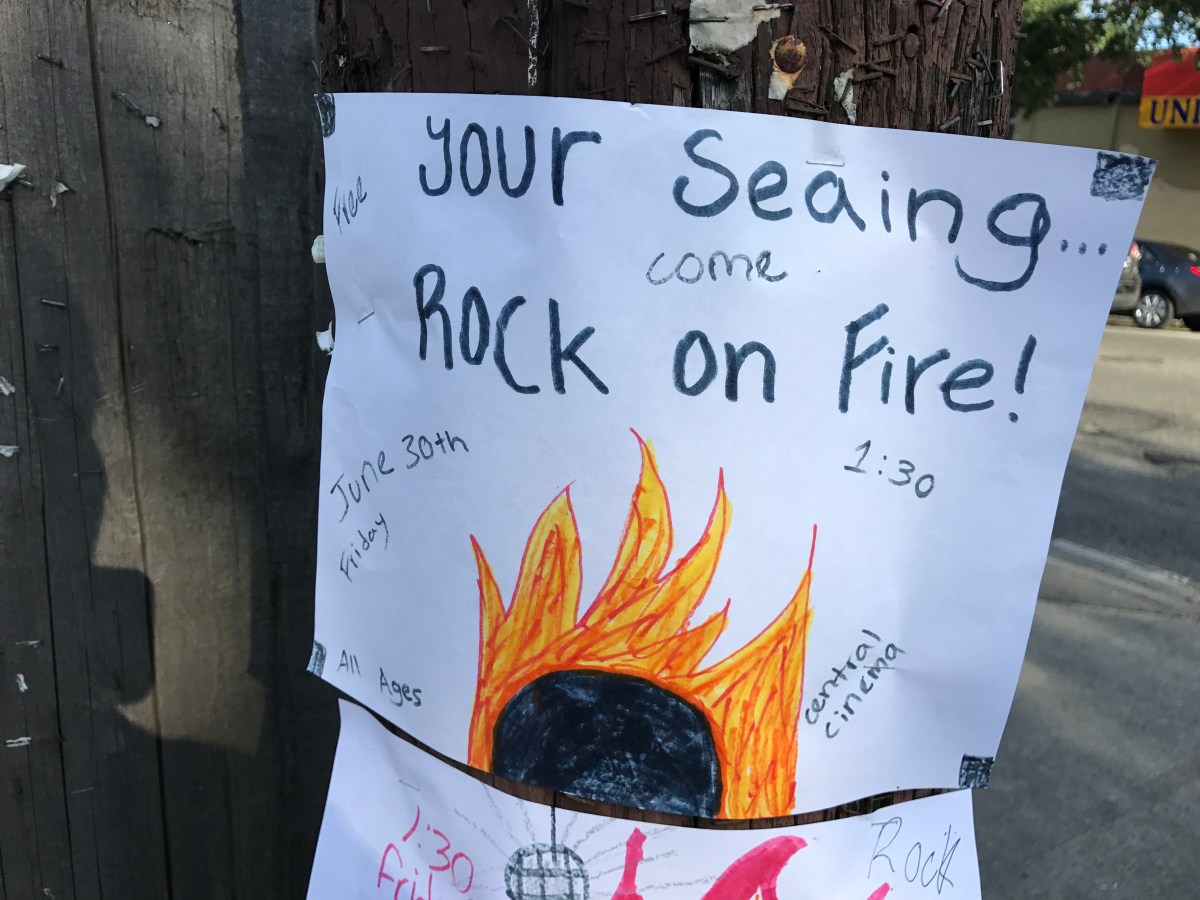 Free
Your Seaing...
come
Rock on Fire!
June 30th
Friday
1:30
All Ages
central
cinema
1:30
Rock
UNI